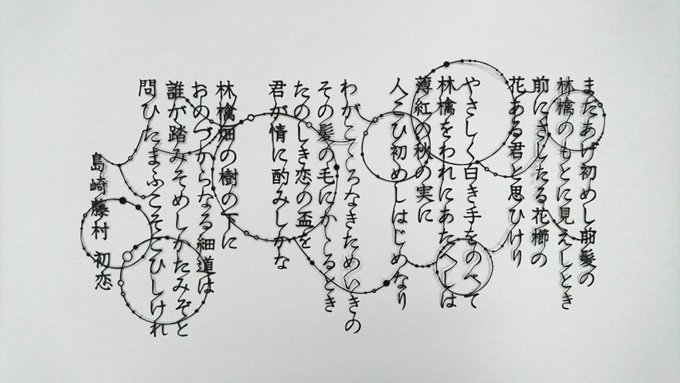 まだあげ初めし前髪の
林檎のもとに見えしとき
前にさしたる花櫛の
花ある君と思ひけり
やさしく白き手をのべて
林檎をわれにあたへしは
薄紅の秋の実に
人こひ初めしはじめなり
わがこゝろなきためいきの
その髪の毛にかゝるとき
たのしき恋の盃を
君が情に酌みしかな
林檎畑の樹の下に
おのづからなる細道は
誰が踏みそめしかたみぞと
問ひたまふこそこひしけれ
島崎藤村 初恋